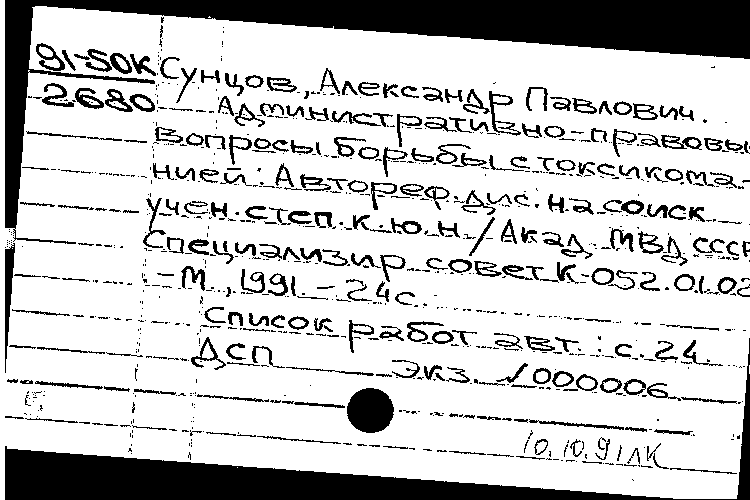 91-50К Сунцов, Александр Павлович.
2680 Административно-правовы
вопросы борьбы с токсикома-
нией: Автореф. дис. на соиск
учен. степ. к.ю.н. / Акад. МВД СССР
Специализир совет К-052.01.02
-М., 1991 - 24с.
Список работ авт.: с. 24.
ДСП Экз. √000006
10.10.91 ЛК